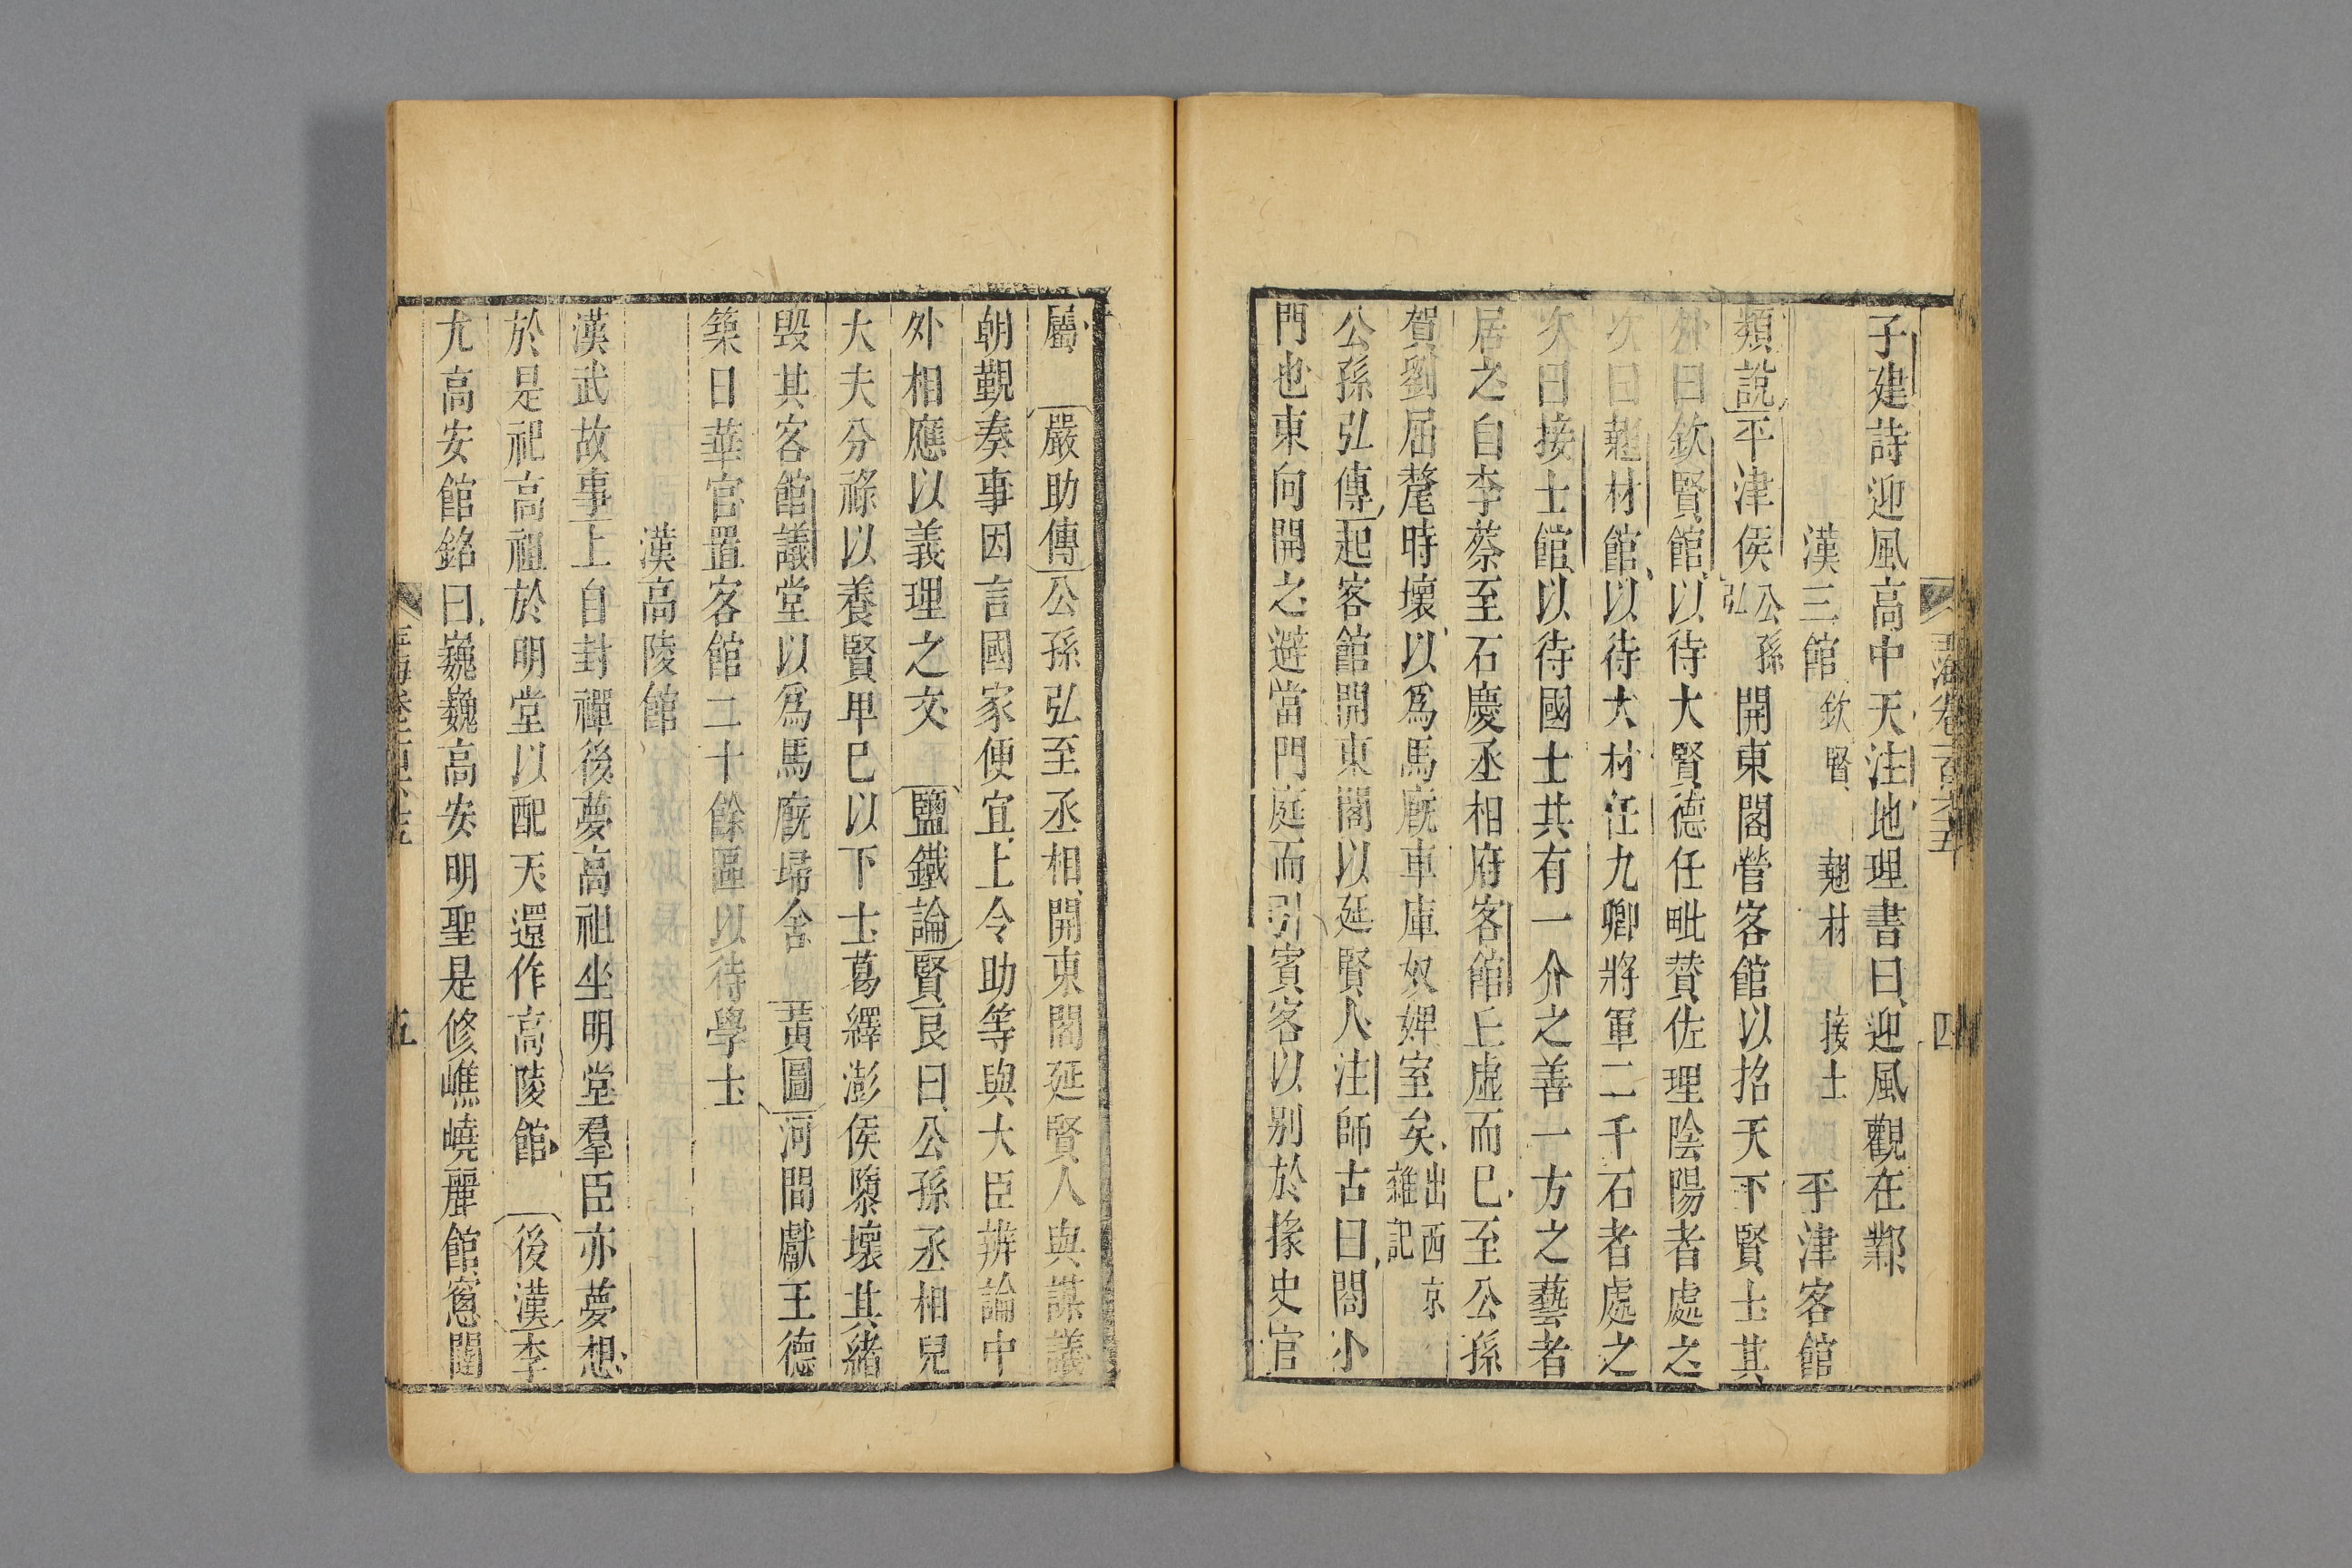 玉海卷一百六十五 四
子建詩迎風高中天注地理書曰迎風觀在鄴
漢三館欽賢翹材接士平津客館
類說平津侯公孫弘開東閣營客館以招天下賢士其
外曰欽賢館以待大賢德任毗賛佐理陰陽者處之
次曰翹材館以待大材任九卿將軍二千石者處之
次曰接士館以待國士共有一介之善一方之藝者
居之自李蔡至石慶丞相府客館丘虛而已至公孫
賀劉屈氂時壞以爲馬廐車庫奴婢室矣出西京雜記
公孫弘傳起客館開東閤以延賢人注師古曰閤小
門也東向開之避當門庭而引賓客以別於掾史官
屬 嚴助傳公孫弘至丞相開東閤延賢人與謀議
朝覲奏事因言國家便宜上令助等與大臣辨論中
外相應以義理之文 鹽鐵論賢良曰公孫丞相兒
大夫分祿以養賢卑已以下士葛繹澎侯隳壞其緒
毀其客館議堂以爲馬廐婦舍 黃圖河間獻王德
築日華宮置客館二十餘區以待學士
漢高陵館
漢武故事上自封禪後夢高祖坐明堂羣臣亦夢想
於是祀高祖於明堂以配天還作高陵館 後漢李
尤高安館銘曰巍巍高安明聖是修嶕嶢麗館窻闥
玉海卷一百六十五 五